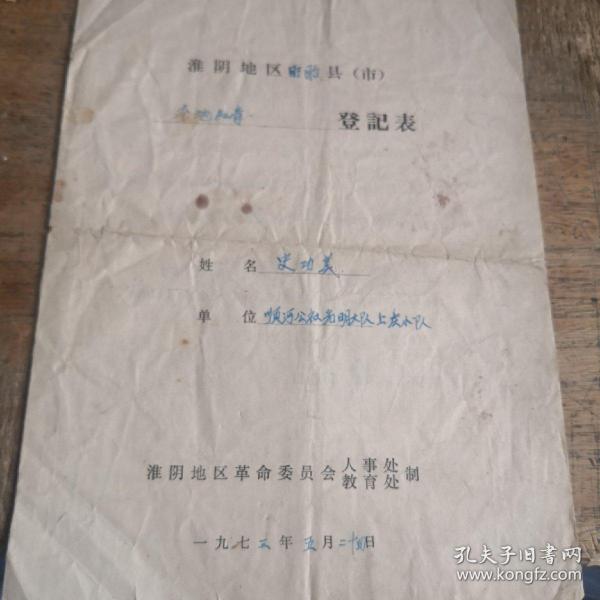 淮阴地区 县（市）
本地知青 登記表
姓名 史功美
单位 顺河公社光明大队上庄小队
淮阴地区革命委员会人事处教育处制
一九七 年 五月二十 日
孔夫子旧书网
www.kongfz.com